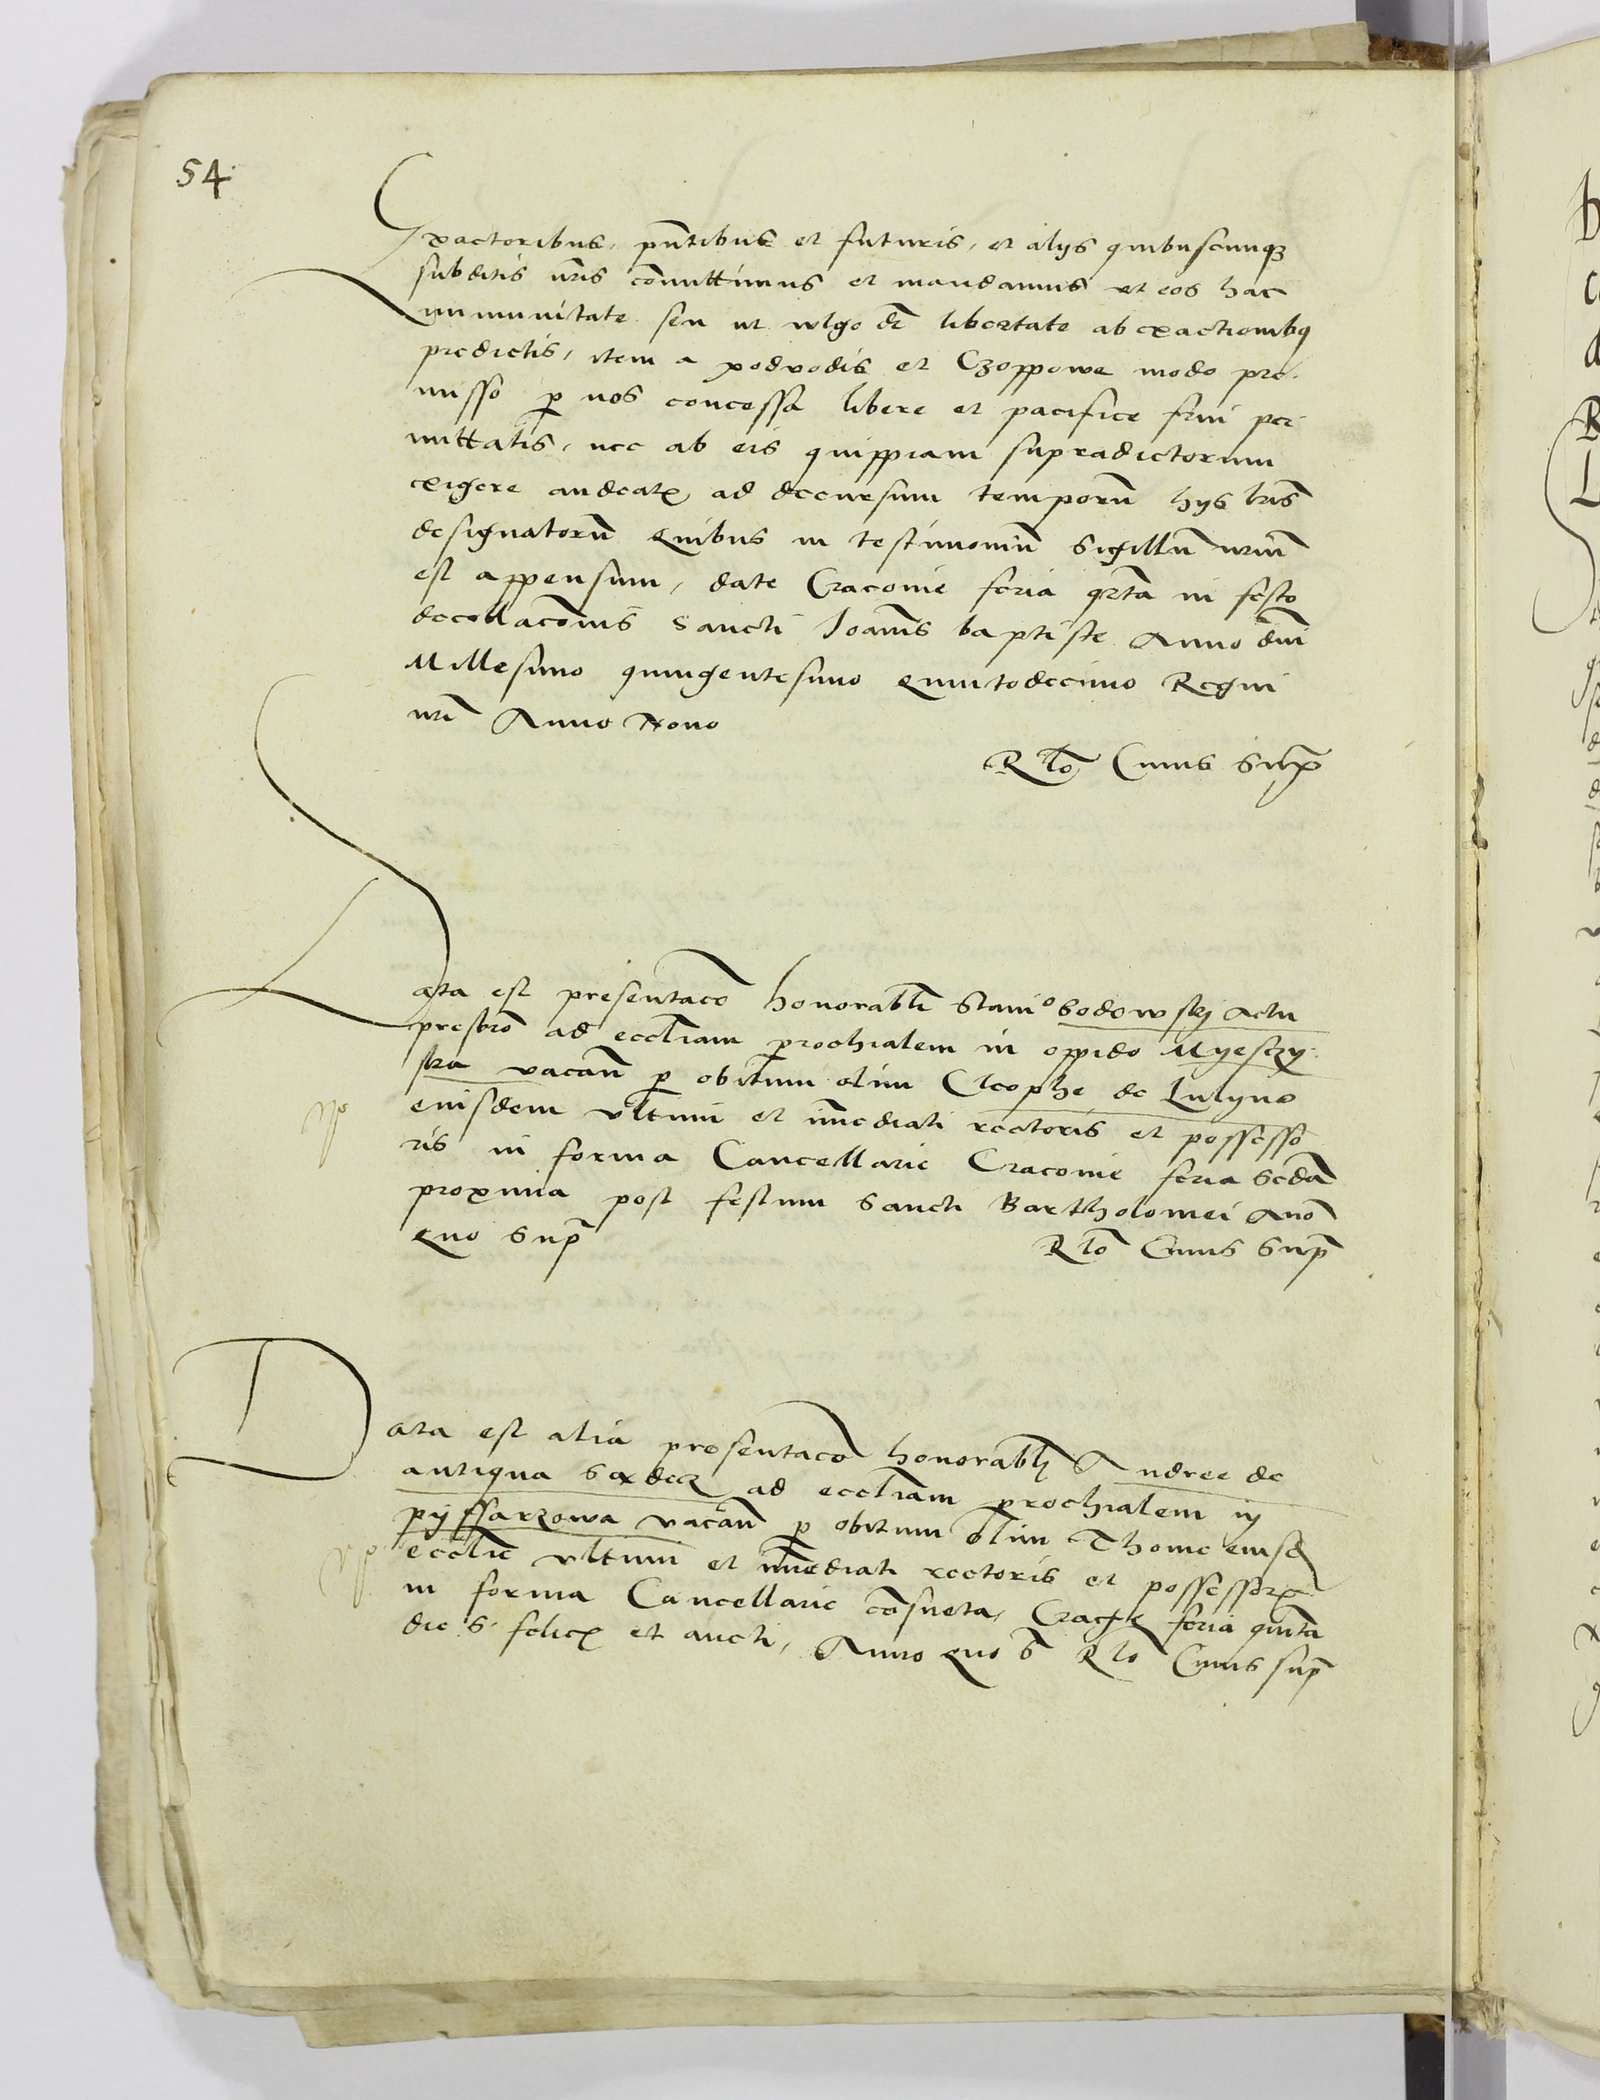 54
Exactoribus, pñtibus et futuris, et alijs quibuscunqz
subditis nr̃is com̃ittimus et mandamus ut eos hac
immunitate seu ut wlgo dr̃ libertate ab exactionibq
predictis, item a podvodis et Czoppowe modo pre-
misso p nos concessa libere et pacifice frui per
mittatis, nec ab eis quippiam supradictorum
exigere audeatis ad decursum temporũ hijs lr̃is
designatorũ Quibus in testimoniũ Sigillũ nr̃m
est appensum, date Cracovie feria qrta in festo
decollacõnis Sancti Joañis baptiste Anno dñi
Millesimo quingentesimo Quintodecimo Regni
nr̃i Anno Nono
Rlõ Cuius Sup̃
Data est presentacõ honorabli Stanᵒ bodowskj Actu
presbr̃o ad eccl̃iam prochialem in oppido Myesczy
ska vacañ p obitum olim Cleophe de Lulyno
eiusdem ultimi et im̃ediati rectoris et possesso
ris in forma Cancellarie Cracovie feria Scda
proxima post festum Sancti Bartholomei Anõ
Quo Sup̃ Rlõ Cuius Sup̃
Data est alia presentacõ honorabli Andree de
antiqua Sandecz ad eccl̃iam prochialem in
pijssarzowa vacañ p obitum olim Thome eiusd
eccl̃ie ultimi et im̃ediati rectoris et possessoris
in forma Cancellarie cõsueta, Crac̃ feria quĩta
die S. felicis et aucti, Anno Quo S Rlõ Cuius sup̃